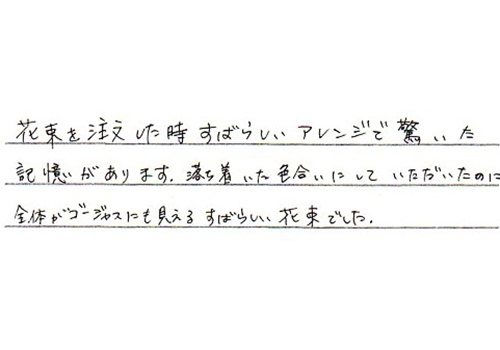 花束を注文した時すばらしいアレンジで驚いた
記憶があります。落ち着いた色合いにしていただいたのに
全体がゴージャスにも見えるすばらしい花束でした。